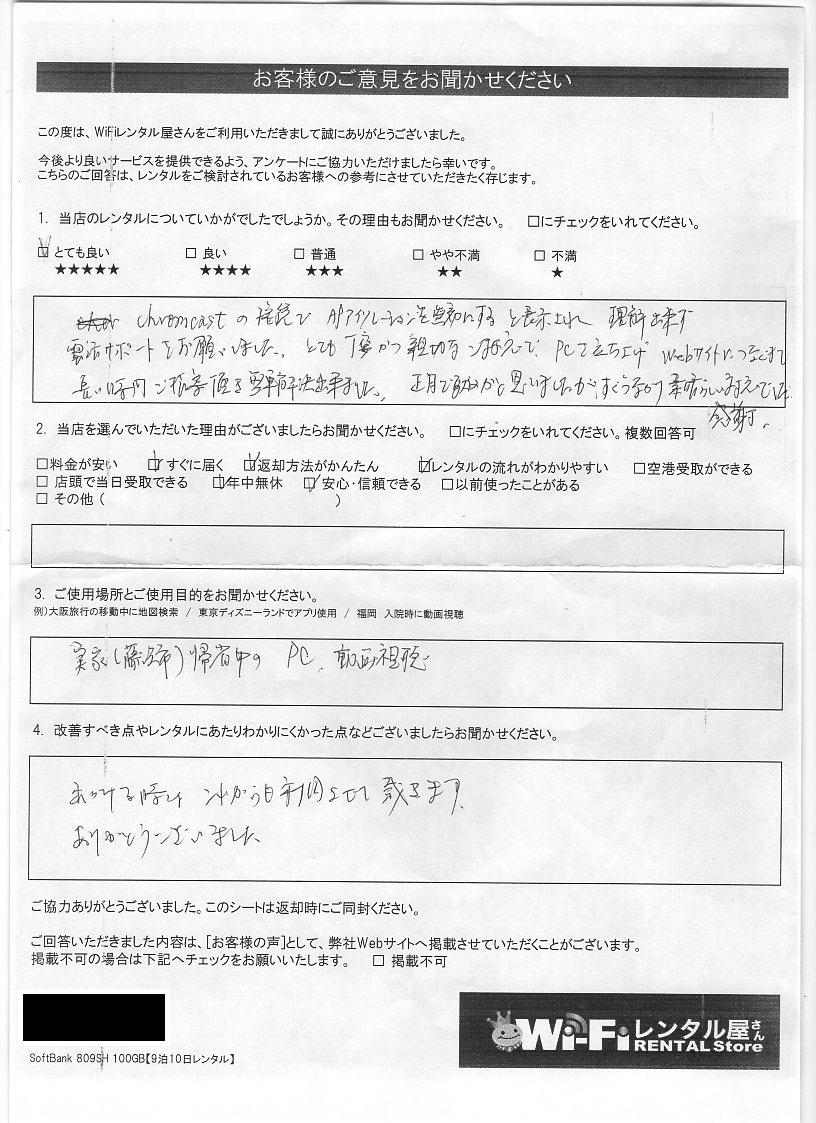 お客様のご意見をお聞かせください
この度は、WiFiレンタル屋さんをご利用いただきまして誠にありがとうございました。
今後より良いサービスを提供できるよう、アンケートにご協力いただけましたら幸いです。
こちらのご回答は、レンタルをご検討されているお客様への参考にさせていただきたく存じます。
1. 当店のレンタルについていかがでしたでしょうか。その理由もお聞かせください。 □にチェックをいれてください。
☑ とても良い □ 良い □ 普通 □ やや不満 □ 不満
★★★★★ ★★★★ ★★★ ★★ ★
chromcastの接続で APアイソレーションを無効にする と表示され 理解出来ず
電話サポートをお願いしました。とても丁寧かつ親切な対応で、PCで立ち上げ Webサイトにつなげて
長い時間 無事解決出来ました。 正月で と思いましたが 素晴らしい対応でした
感謝。
2. 当店を選んでいただいた理由がございましたらお聞かせください。 □にチェックをいれてください。複数回答可
□料金が安い ☑すぐに届く ☑返却方法がかんたん ☑レンタルの流れがわかりやすい □空港受取ができる
□ 店頭で当日受取できる ☑年中無休 ☑ 安心・信頼できる □以前使ったことがある
□ その他 ( )
3. ご使用場所とご使用目的をお聞かせください。
例)大阪旅行の移動中に地図検索 / 東京ディズニーランドでアプリ使用 / 福岡 入院時に動画視聴
実家(藤沢市)帰省中の PC、動画視聴
4. 改善すべき点やレンタルにあたりわかりにくかった点などございましたらお聞かせください。
時は これからも利用させて戴きます。
ありがとうございました
ご協力ありがとうございました。このシートは返却時にご同封ください。
ご回答いただきました内容は、[お客様の声]として、弊社Webサイトへ掲載させていただくことがございます。
掲載不可の場合は下記へチェックをお願いいたします。 □ 掲載不可
Wi-Fiレンタル屋さん
RENTAL Store
SoftBank 809SH 100GB【9泊10日レンタル】